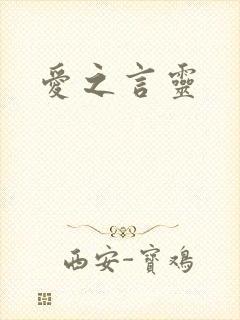 愛之言靈
西安-寶鸡